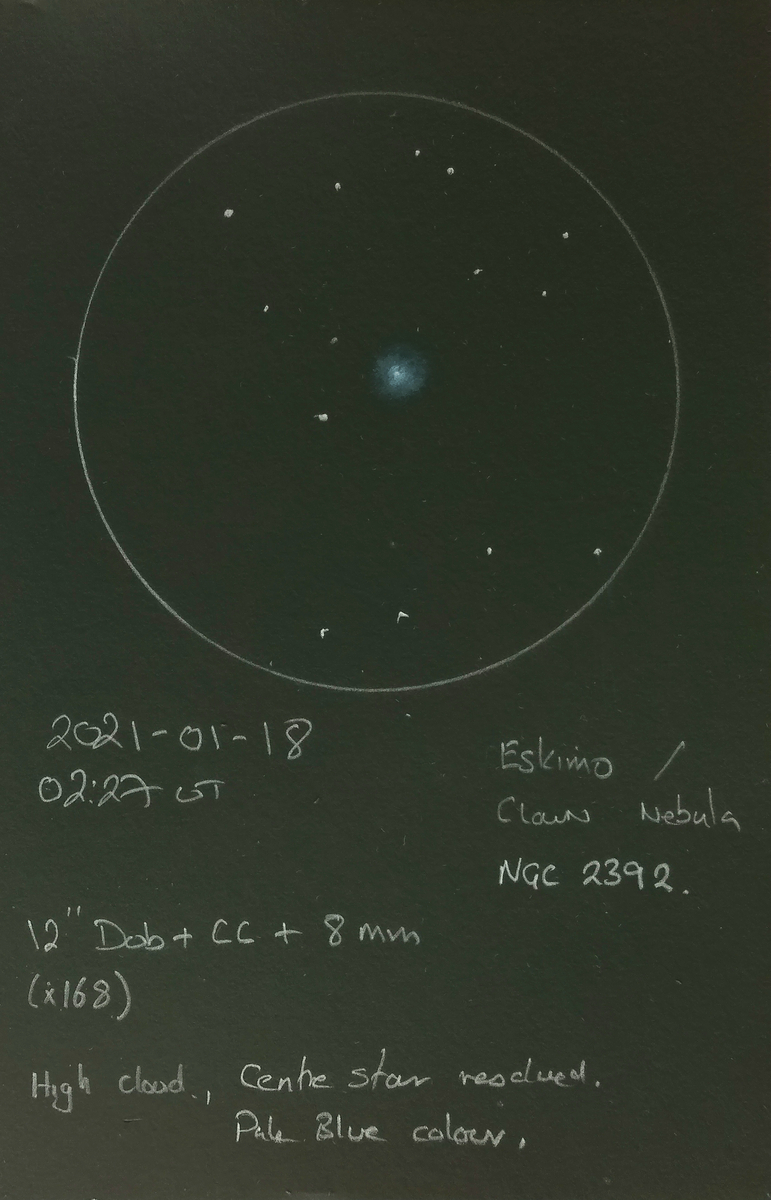 2021-01-18
02:27 UT
Eskimo /
Clown Nebula
NGC 2392.
12" Dob + CC + 8mm
(x168)
High cloud., Centre star resolved.
Pale Blue colour.